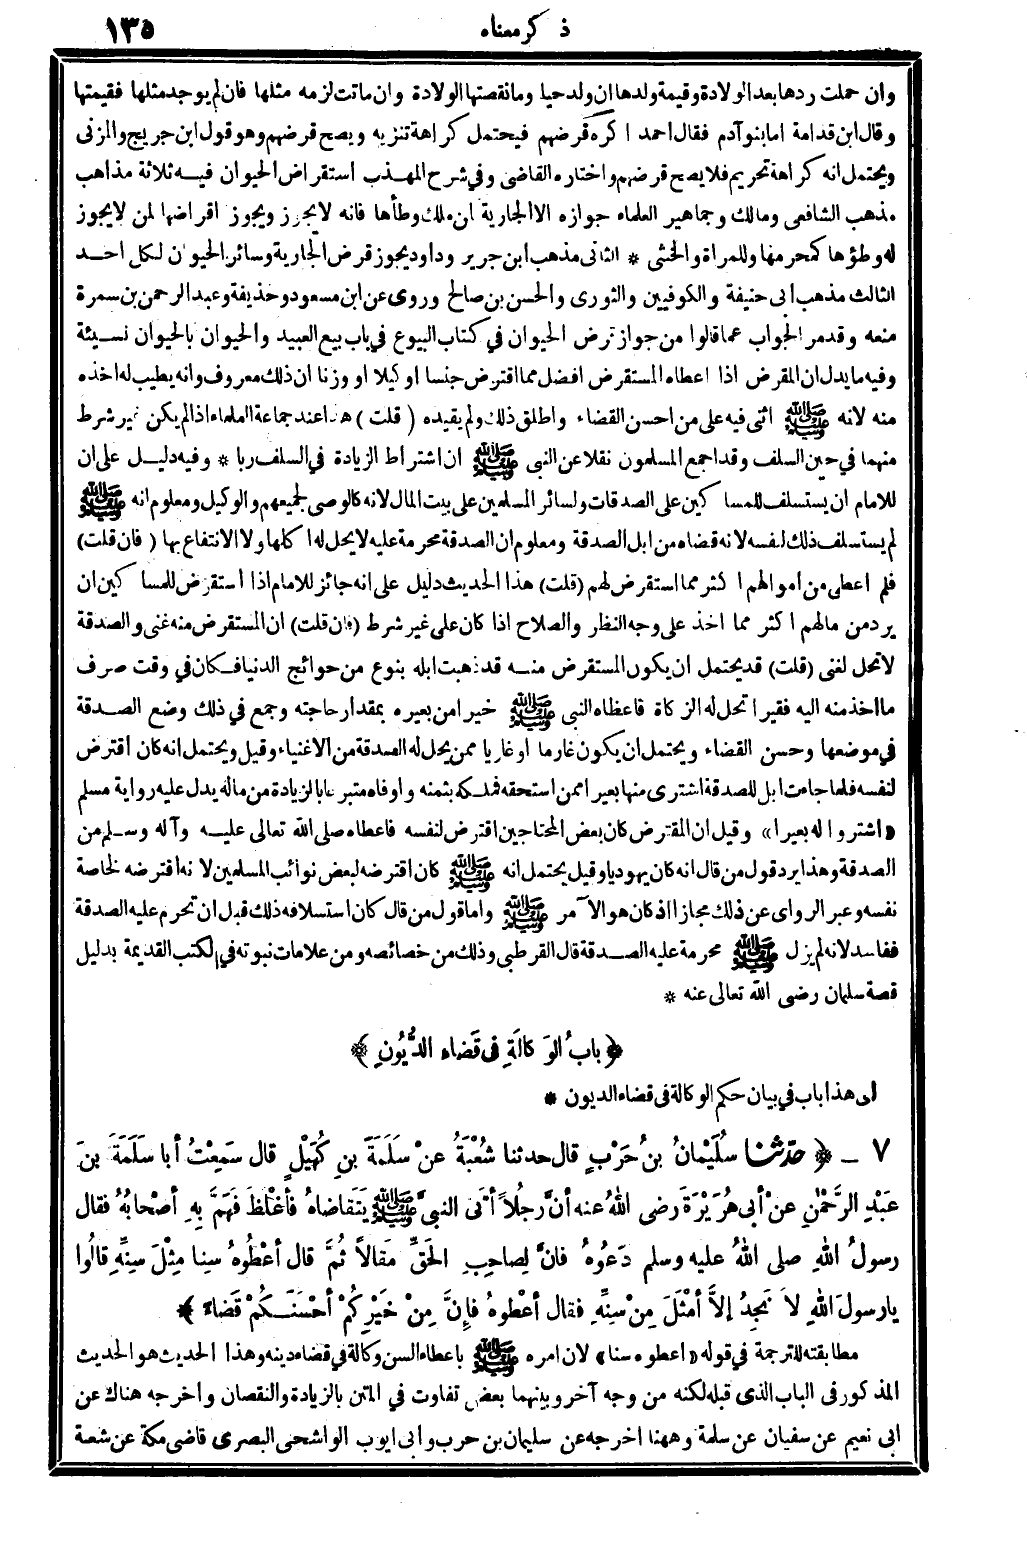 ذكر معناه ١٣٥
وان حملت ردها بعد الولادة وقيمة ولدها ان ولد حيا وما نقصتها الولادة وان ماتت لزمه مثلها فان لم يوجد مثلها فقيمتها
وقال ابن قدامة اما بنو آدم فقال احمد اكره قرضهم فيحتمل كراهة تنزيه ويصح قرضهم وهو قول ابن جريج والمزنى
ويحتمل انه كراهة تحريم فلا يصح قرضهم واختاره القاضى وفي شرح المهذب استقراض الحيوان فيه ثلاثة مذاهب
مذهب الشافعى ومالك وجماهير العلماء جوازه الا الجارية ان ملك وطأها فانه لا يجوز ويجوز اقراضها لمن لا يجوز
له وطؤها كمحرمها وللمراة والخنثى * الثانى مذهب ابن جرير وداود يجوز قرض الجارية وسائر الحيوان لكل احد
الثالث مذهب ابى حنيفة والكوفيين والثورى والحسن بن صالح وروى عن ابن مسعود وحذيفة وعبد الرحمن بن سمرة
منعه وقد مر الجواب عما قالوا من جواز قرض الحيوان في كتاب البيوع في باب بيع العبيد والحيوان بالحيوان نسيئة
وفيه ما يدل ان المقرض اذا اعطاه المستقرض افضل مما اقترض جنسا او كيلا او وزنا ان ذلك معروف وانه يطيب له اخذه
منه لانه ﷺ اثنى فيه على من احسن القضاء واطلق ذلك ولم يقيده (قلت) هذا عند جماعة العلماء اذا لم يكن غير شرط
منهما في حين السلف وقد اجمع المسلمون نقلا عن النبى ﷺ ان اشتراط الزيادة في السلف ربا * وفيه دليل على ان
للامام ان يستسلف للمساكين على الصدقات ولسائر المسلمين على بيت المال لانه كالوصى لجميعهم والوكيل ومعلوم انه ﷺ
لم يستسلف ذلك لنفسه لانه قضاه من ابل الصدقة ومعلوم ان الصدقة محرمة عليه لا يحل له اكلها ولا الانتفاع بها (فان قلت)
فلم اعطى من اموالهم اكثر مما استقرض لهم (قلت) هذا الحديث دليل على انه جائز للامام اذا استقرض للمساكين ان
يرد من مالهم اكثر مما اخذ على وجه النظر والصلاح اذا كان على غير شرط (فان قلت) ان المستقرض منه غنى والصدقة
لا تحل لغنى (قلت) قد يحتمل ان يكون المستقرض منه قد ذهبت ابله بنوع من حوائج الدنيا فكان في وقت صرف
ما اخذ منه اليه فقيرا تحل له الزكاة فاعطاه النبى ﷺ خيرا من بعيره بمقدار حاجته وجمع في ذلك وضع الصدقة
في موضعها وحسن القضاء ويحتمل ان يكون غارما او غازيا ممن يحل له الصدقة من الاغنياء وقيل ويحتمل انه كان اقترض
لنفسه فلما جاءت ابل للصدقة اشترى منها بعيرا ممن استحقه فملكه بثمنه واوفاه متبرعا بالزيادة من ماله يدل عليه رواية مسلم
«اشتروا له بعيرا» وقيل ان المقترض كان بعض المحتاجين اقترض لنفسه فاعطاه صلى الله تعالى عليه وآله وسلم من
الصدقة وهذا يرد قول من قال انه كان يهوديا وقيل يحتمل انه ﷺ كان اقترضه لبعض نوائب المسلمين لا نه اقترضه لخاصة
نفسه وعبر الرواى عن ذلك مجازا اذ كان هو الآمر ﷺ واما قول من قال كان استسلافه ذلك قبل ان تحرم عليه الصدقة
ففاسد لانه لم يزل ﷺ محرمة عليه الصدقة قال القرطبى وذلك من خصائصه ومن علامات نبوته في الكتب القديمة بدليل
قصة سلمان رضى الله تعالى عنه *
﴿ بابُ الوَكالَةِ فى قَضاءِ الدُّيُونِ ﴾
اى هذا باب في بيان حكم الوكالة فى قضاء الديون *
٧ ــ ﴿ حدّثنا سُلَيْمانُ بنُ حَرْبٍ قال حدثنا شُعْبَةُ عنْ سَلَمَةَ بنِ كُهَيْلٍ قال سَمِعْتُ أبا سَلَمَةَ بنَ
عَبْدِ الرَّحْمٰنِ عنْ أبى هُرَيْرَةَ رضى اللهُ عنه أنَّ رجُلاً أتَى النبىَّ ﷺ يَتَقاضاهُ فأغْلَظَ فَهَمَّ بِهِ أصْحابُهُ فقال
رسولُ اللهِ صلى اللهُ عليه وسلم دَعُوهُ فانَّ لِصاحِبِ الحَقِّ مَقالاً ثُمَّ قال أعْطُوهُ سِنا مِثْلَ سِنِّهِ قالُوا
يا رسولَ اللهِ لاَ نَجِدُ إلاَّ أمْثَلَ مِنْ سِنِّهِ فقال أعْطوهُ فإنَّ مِنْ خَيْرِكُمْ أحْسَنَكُمْ قَضاءً ﴾
مطابقته للترجمة في قوله «اعطوه سنا» لان امره ﷺ باعطاء السن وكالة في قضاء دينه وهذا الحديث هو الحديث
المذكور فى الباب الذى قبله لكنه من وجه آخر وبينهما بعض تفاوت في المتن بالزيادة والنقصان واخرجه هناك عن
ابى نعيم عن سفيان عن سلمة وههنا اخرجه عن سليمان بن حرب وابى ايوب الواشحى البصرى قاضى مكة عن شعبة